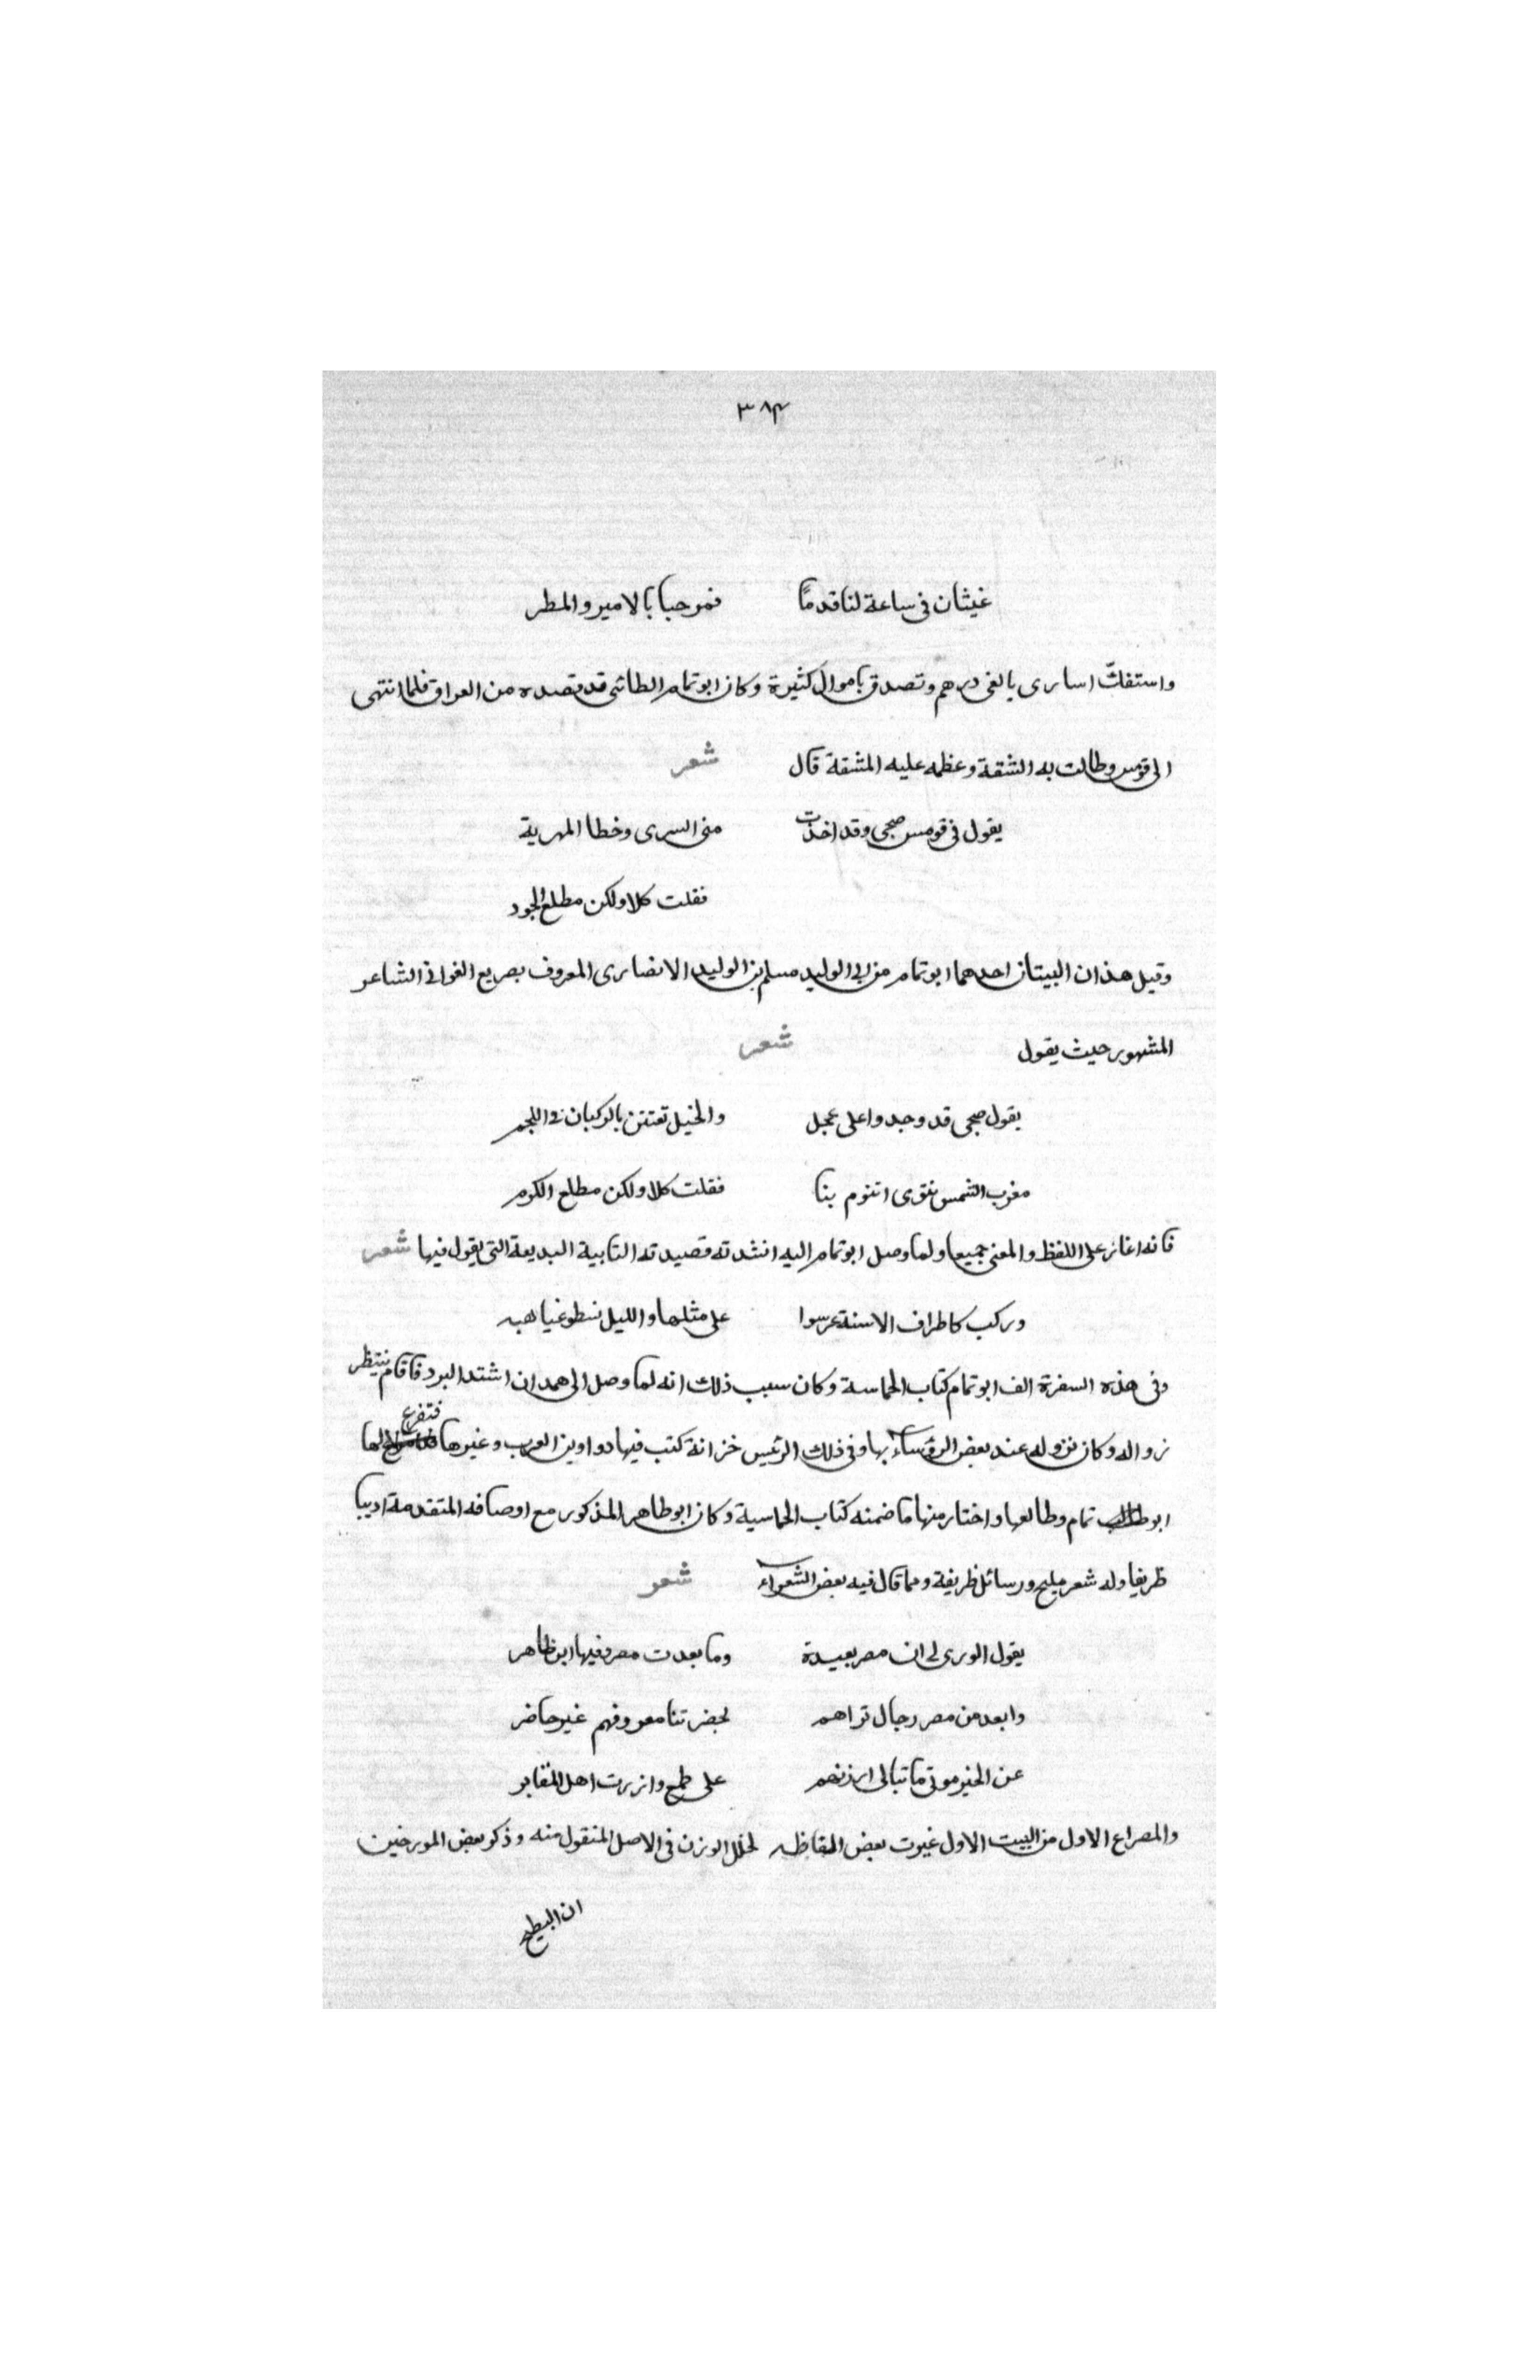 ٣٨٤
غيثان فى ساعة لنا قدما فمرحبا بالامير والمطر
واستفكّ اسارى بالفى درهم وتصدق باموال كثيرة وكان ابو تمام الطائى قد قصده من العراق فلما انتهى
الى قومس وطالت به الشقة وعظمه عليه المشقة قال شعر
يقول فى قومس صحبى وقد اخذت منى السرى وخطا المهرية
فقلت كلا ولكن مطلع الجود
وقيل هذان البيتان احدهما ابو تمام من ابى الوليد مسلم بن الوليد الانصارى المعروف بصريع الغوانى الشاعر
المشهور حيث يقول شعر
يقول صحبى قد وجدوا على عجل والخيل تفتتن بالركبان فى اللجم
مغرب الشمس تنوى اتنوم بنا فقلت كلا ولكن مطلع الكرم
فانه اغار على اللفظ والمعنى جميعا ولما وصل ابو تمام اليه انشدته قصيدته التابية البديعة التى يقول فيها شعر
وركب كاطراف الاسنة عرسوا على مثلها والليل نسطو غياهبه
وفى هذه السفرة الف ابو تمام كتاب الحماسة وكان سبب ذلك انه لما وصل الى همدان اشتد البرد فاقام ينتظر
زواله وكان نزوله عند بعض الرؤساء بها وفى ذلك الرئيس خزانة كتب فيها دواوين العرب وغيرها فتفرغ لها
ابو تمام وطالعها واختار منها ما ضمنه كتاب الحماسية وكان ابو طاهر المذكور مع اوصافه المتقدمة اديبا
ظريفا وله شعر مليح ورسائل ظريفة ومما قال فيه بعض الشعراء شعر
يقول الورى لى ان مصر بعيدة وما بعدت مصر وفيها ابن ظاهر
وابعد من مصر رجال تراهم لحضرتنا معروفهم غير حاضر
عن الخير موتى ما تبالى ازرتهم على طمع وازرت اهل المقابر
والمصراع الاول من البيت الاول غيرت بعض الفاظه لخلل الوزن فى الاصل المنقول منه وذكر بعض المورخين
ان البطيخ